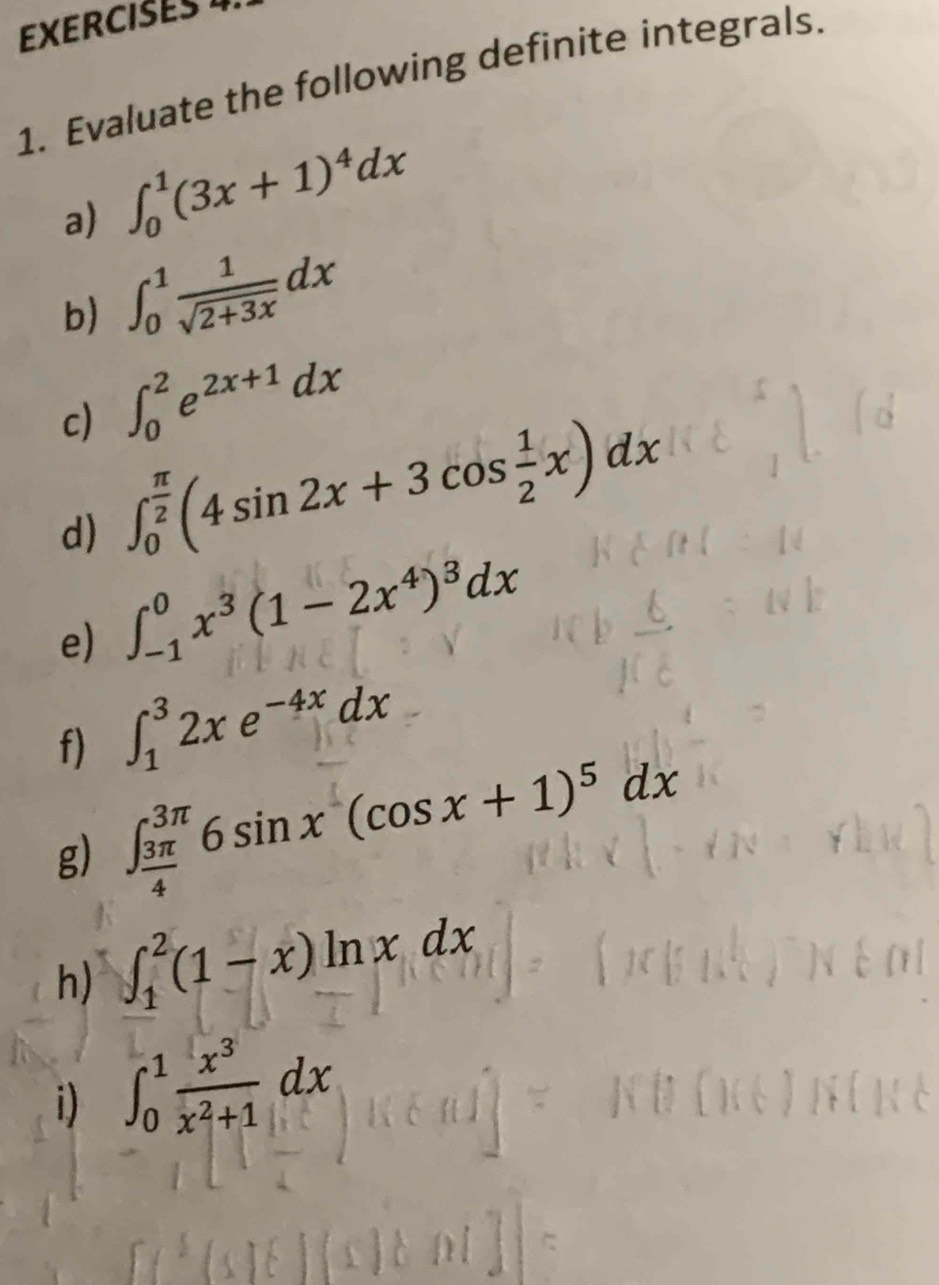 EXERCISES 4.
1. Evaluate the following definite integrals.
a) ∫₀¹(3x + 1)⁴dx
b) ∫₀¹ 1/√(2+3x) dx
c) ∫₀² e^(2x+1) dx
d) ∫₀^(π/2) (4 sin 2x + 3 cos ½x) dx
e) ∫₋₁⁰ x³ (1 − 2x⁴)³dx
f) ∫₁³ 2x e^(−4x) dx
g) ∫_(3π/4)^(3π) 6 sin x (cos x + 1)⁵ dx
h) ∫₁²(1 − x) ln x dx
i) ∫₀¹ x³/(x²+1) dx